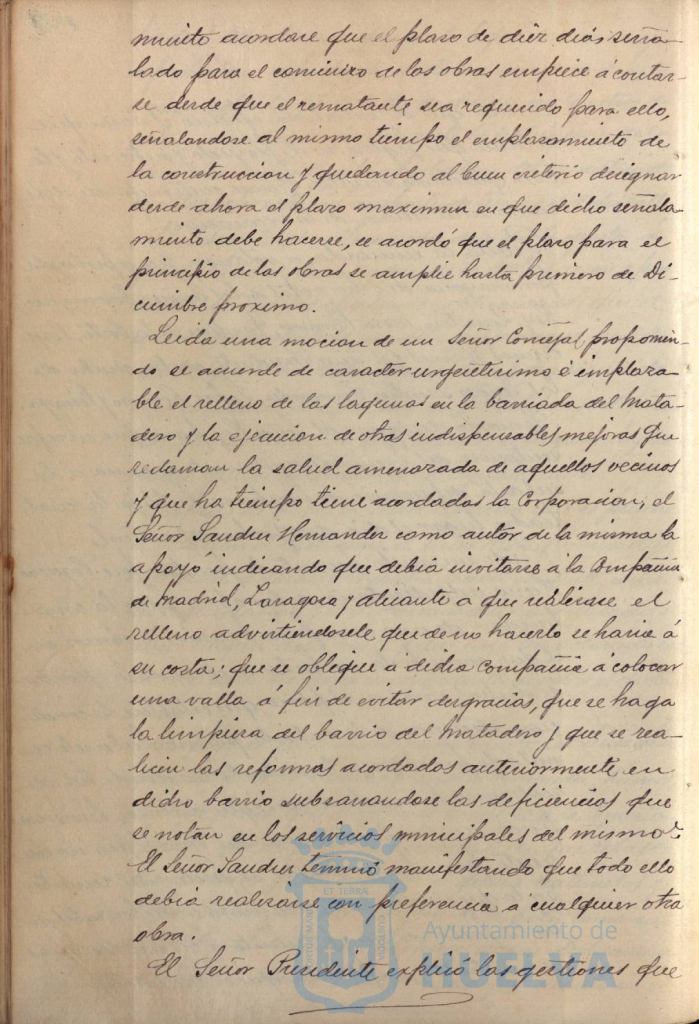 miento acordase que el plaso de diez dias seña-
lado para el comienzo de las obras empiece á contar-
se desde que el rematante sea requerido para ello,
señalandose al mismo tiempo el emplasamiento de
la construccion y quedando al buen criterio designar
desde ahora el plaso maximun en que dicho señala-
miento debe hacerse, se acordó que el plaso para el
principio de las obras se amplie hasta primero de Di-
ciembre proximo.
Leida una mocion de un Señor Concejal proponien-
do se acuerde de caracter urgentisimo é implaza-
ble el relleno de las lagunas en la barriada del Mata-
dero y la ejecucion de otras indispensables mejoras que
reclaman la salud amenazada de aquellos vecinos
y que ha tiempo tiene acordadas la Corporacion, el
Señor Sanchez Hernandez como autor de la misma la
apoyó indicando que debia invitarse á la Compañia
de Madrid, Zaragosa y Alicante á que realizase el
relleno advirtiendosele que de no hacerlo se haria á
su costa; que se obligue á dicha Compañia á colocar
una valla á fin de evitar desgracias, que se haga
la limpieza del barrio del Matadero y que se rea-
licen las reformas acordadas anteriormente en
dicho barrio subsanandose las deficiencias que
se notan en los servicios municipales del mismo.
El Señor Sanchez terminó manifestando que todo ello
debia realizarse con preferencia á cualquier otra
obra.
El Señor Presidente explicó las gestiones que
Ayuntamiento de
HUELVA